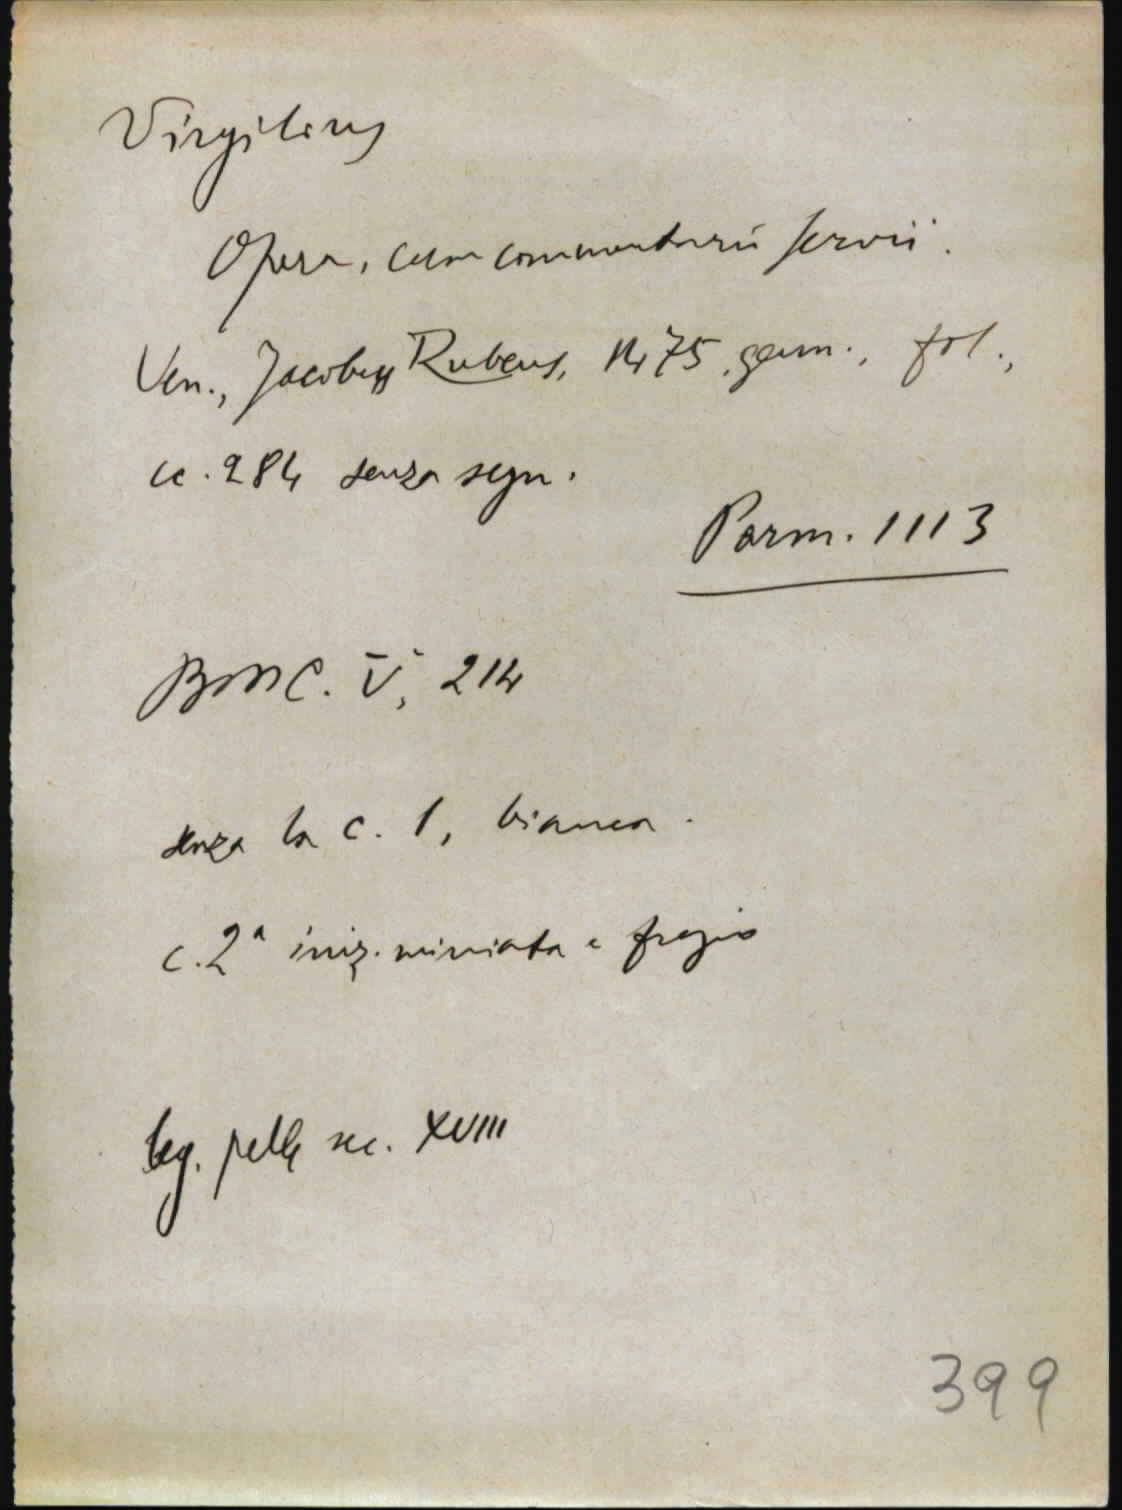 Virgilius
Opera, cum commentariis Servii.
Ven., Jacobus Rubeus, 1475, genn., fol.,
cc. 284 senza segn.
Parm. 1113
BMC. V, 214
senza la c. 1, bianca.
c. 2ª iniz. miniata e fregio
leg. pelle sec. XVIII
399